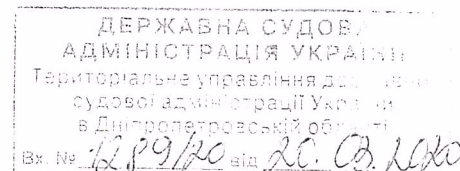 ДЕРЖАВНА СУДОВА
АДМІНІСТРАЦІЯ УКРАЇНИ
Територіальне управління
судової адміністрації України
в Дніпропетровській області
Вх. № 1289/20 від 20. 03. 2020